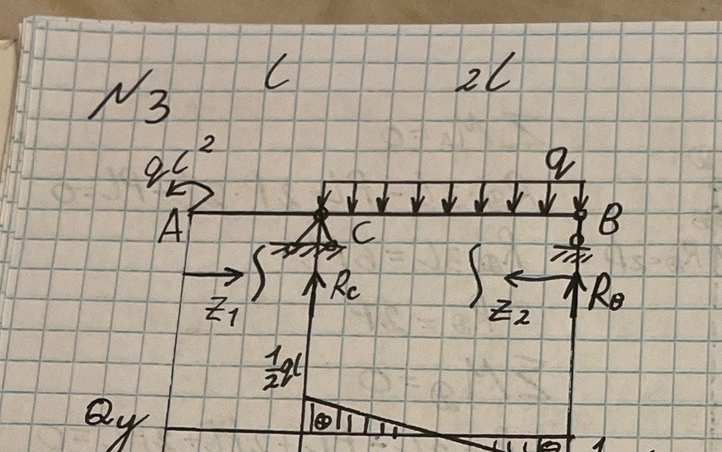 №3
l 2l
ql² q
A C B
z₁ Rc z₂ RB
½ql
Qy ⊕ ⊖